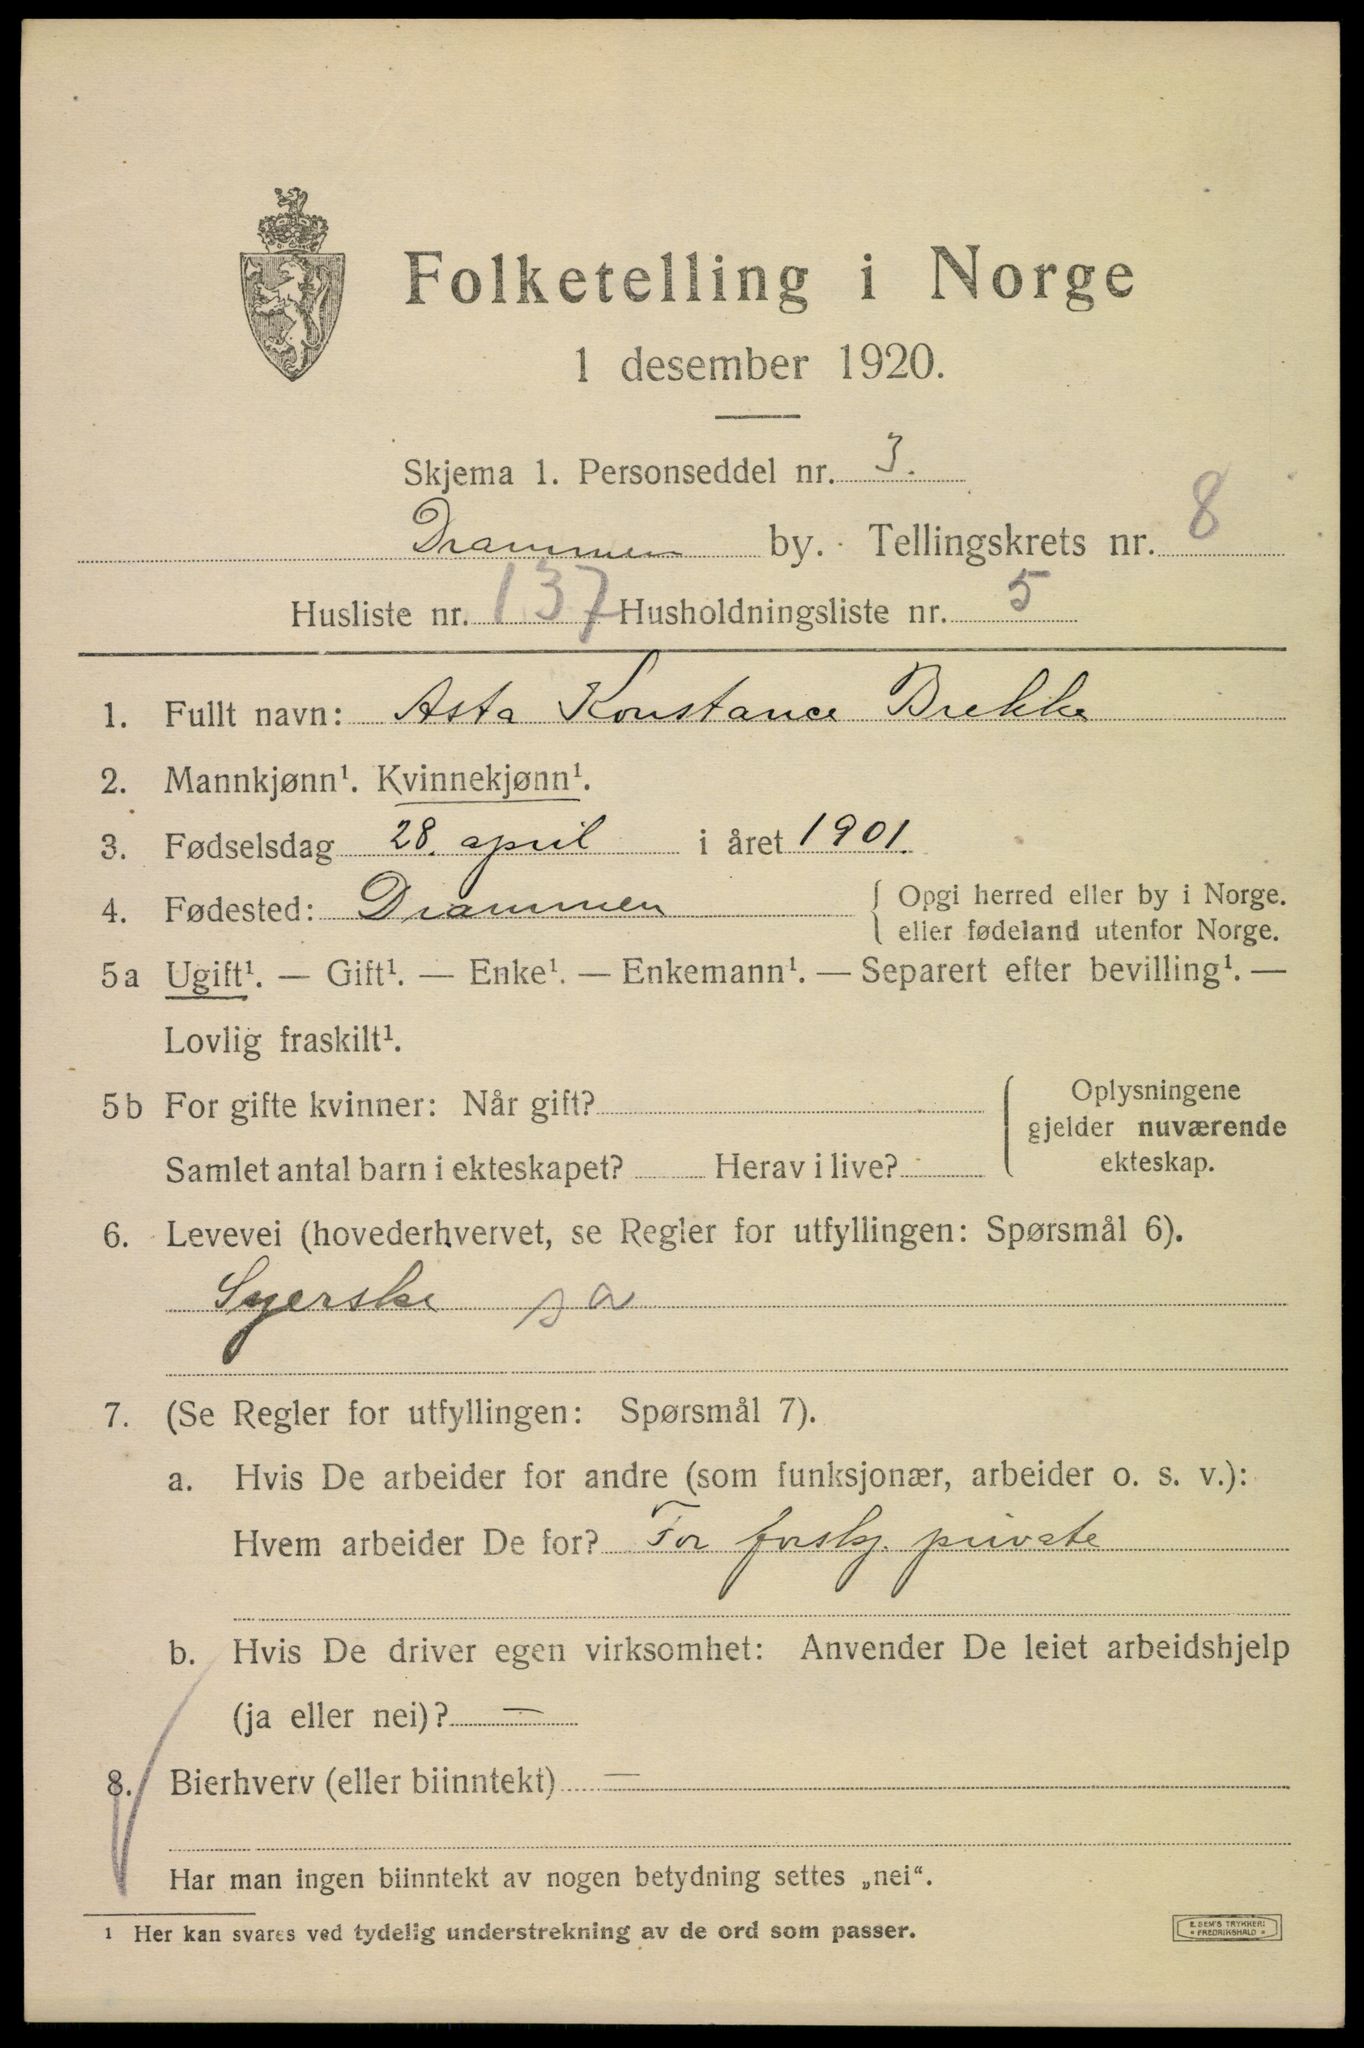 Folketelling i Norge
1 desember 1920.
Skjema 1. Personseddel nr. 3.
Drammen by. Tellingskrets nr. 8
Husliste nr. 137 Husholdningsliste nr. 5
1. Fullt navn: Asta Konstance Brekke
2. Mannkjønn¹. Kvinnekjønn¹.
3. Fødselsdag 28. april i året 1901.
4. Fødested: Drammen { Opgi herred eller by i Norge.
eller fødeland utenfor Norge.
5a Ugift¹. — Gift¹. — Enke¹. — Enkemann¹. — Separert efter bevilling¹. —
Lovlig fraskilt¹.
5b For gifte kvinner: Når gift?
Samlet antal barn i ekteskapet? Herav i live?
Oplysningene
gjelder nuværende
ekteskap.
6. Levevei (hovederhvervet, se Regler for utfyllingen: Spørsmål 6).
Syerske sa
7. (Se Regler for utfyllingen: Spørsmål 7).
a. Hvis De arbeider for andre (som funksjonær, arbeider o. s. v.):
Hvem arbeider De for? For forskj. private
b. Hvis De driver egen virksomhet: Anvender De leiet arbeidshjelp
(ja eller nei)? —
8. Bierhverv (eller biinntekt) —
Har man ingen biinntekt av nogen betydning settes „nei“.
¹ Her kan svares ved tydelig understrekning av de ord som passer.
E. SEM'S TRYKKERI
* FREDRIKSHALD *